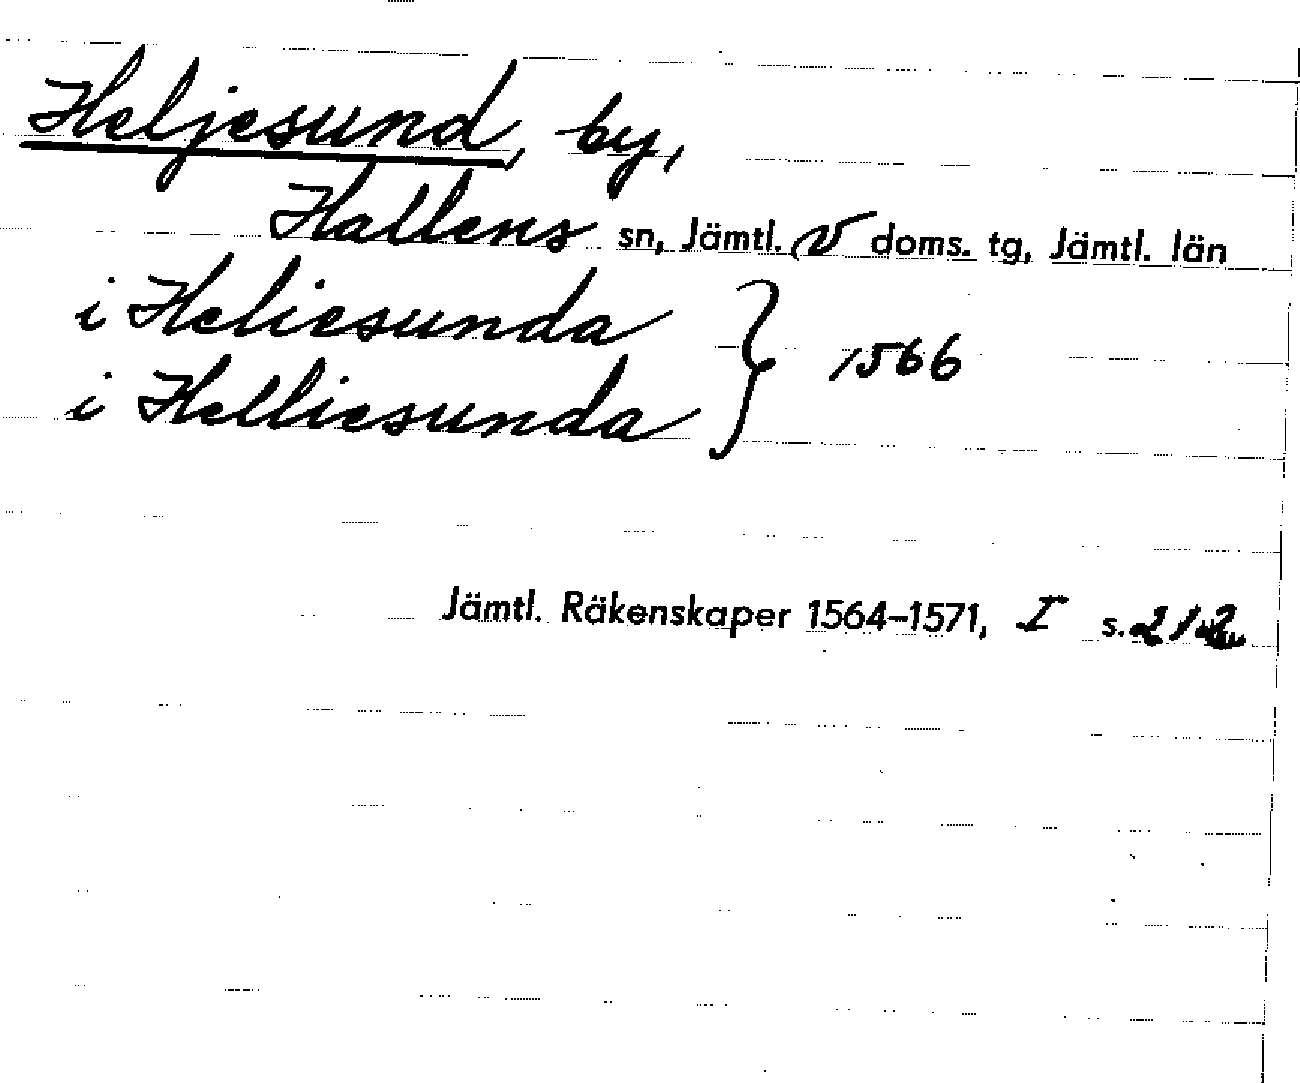 Heljesund, by,
Hallens sn, Jämtl. V doms. tg, Jämtl. län
i Heliesunda
i Helliesunda } 1566
Jämtl. Räkenskaper 1564–1571, I s. 212